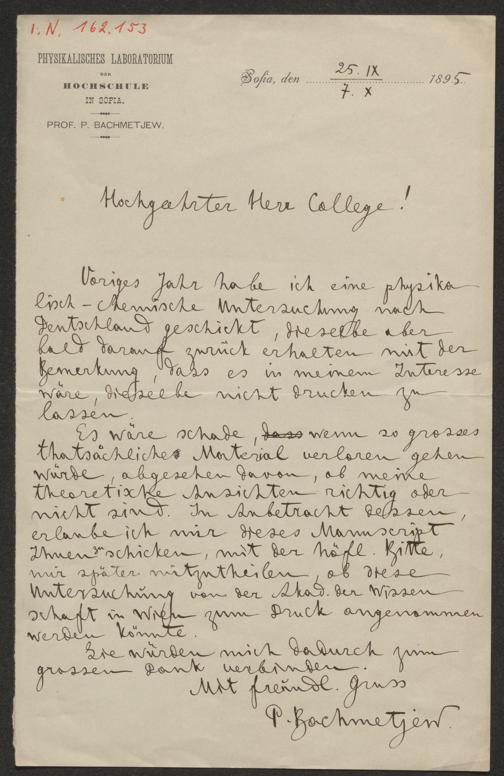 I.N. 162.153
PHYSIKALISCHES LABORATORIUM
DER
HOCHSCHULE
IN SOFIA.
PROF. P. BACHMETJEW.
Sofia, den 25. IX 1895.
7. X
Hochgeehrter Herr College!
Voriges Jahr habe ich eine physika
lisch-chemische Untersuchung nach
Deutschland geschickt, dieselbe aber
bald darauf zurück erhalten mit der
Bemerkung, dass es in meinem Interesse
wäre, dieselbe nicht drucken zu
lassen.
Es wäre schade, dass wenn so grosses
thatsächliches Material verloren gehen
würde, abgesehen davon, ob meine
theoretische Ansichten richtig oder
nicht sind. In Anbetracht dessen,
erlaube ich mir dieses Manuscript
Ihnen zu schicken, mit der höfl. Bitte,
mir später mitzutheilen, ob diese
Untersuchung von der Akad. der Wissen
schaft in Wien zum Druck angenommen
werden könnte.
Sie würden mich dadurch zum
grossen Dank verbinden.
Mit freundl. Gruss
P. Bachmetjew.